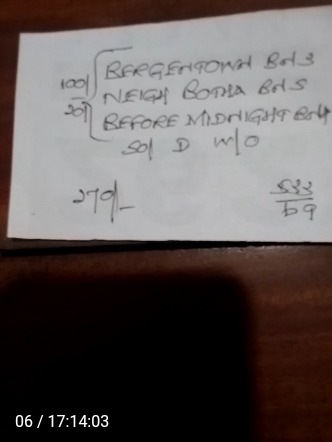 100/ BERGENTOWN BN 3
20/ NEIGH BOTHA BN 5
BEFORE MIDNIGHT BN4
50/ D W/O
270/-
69
06 / 17:14:03